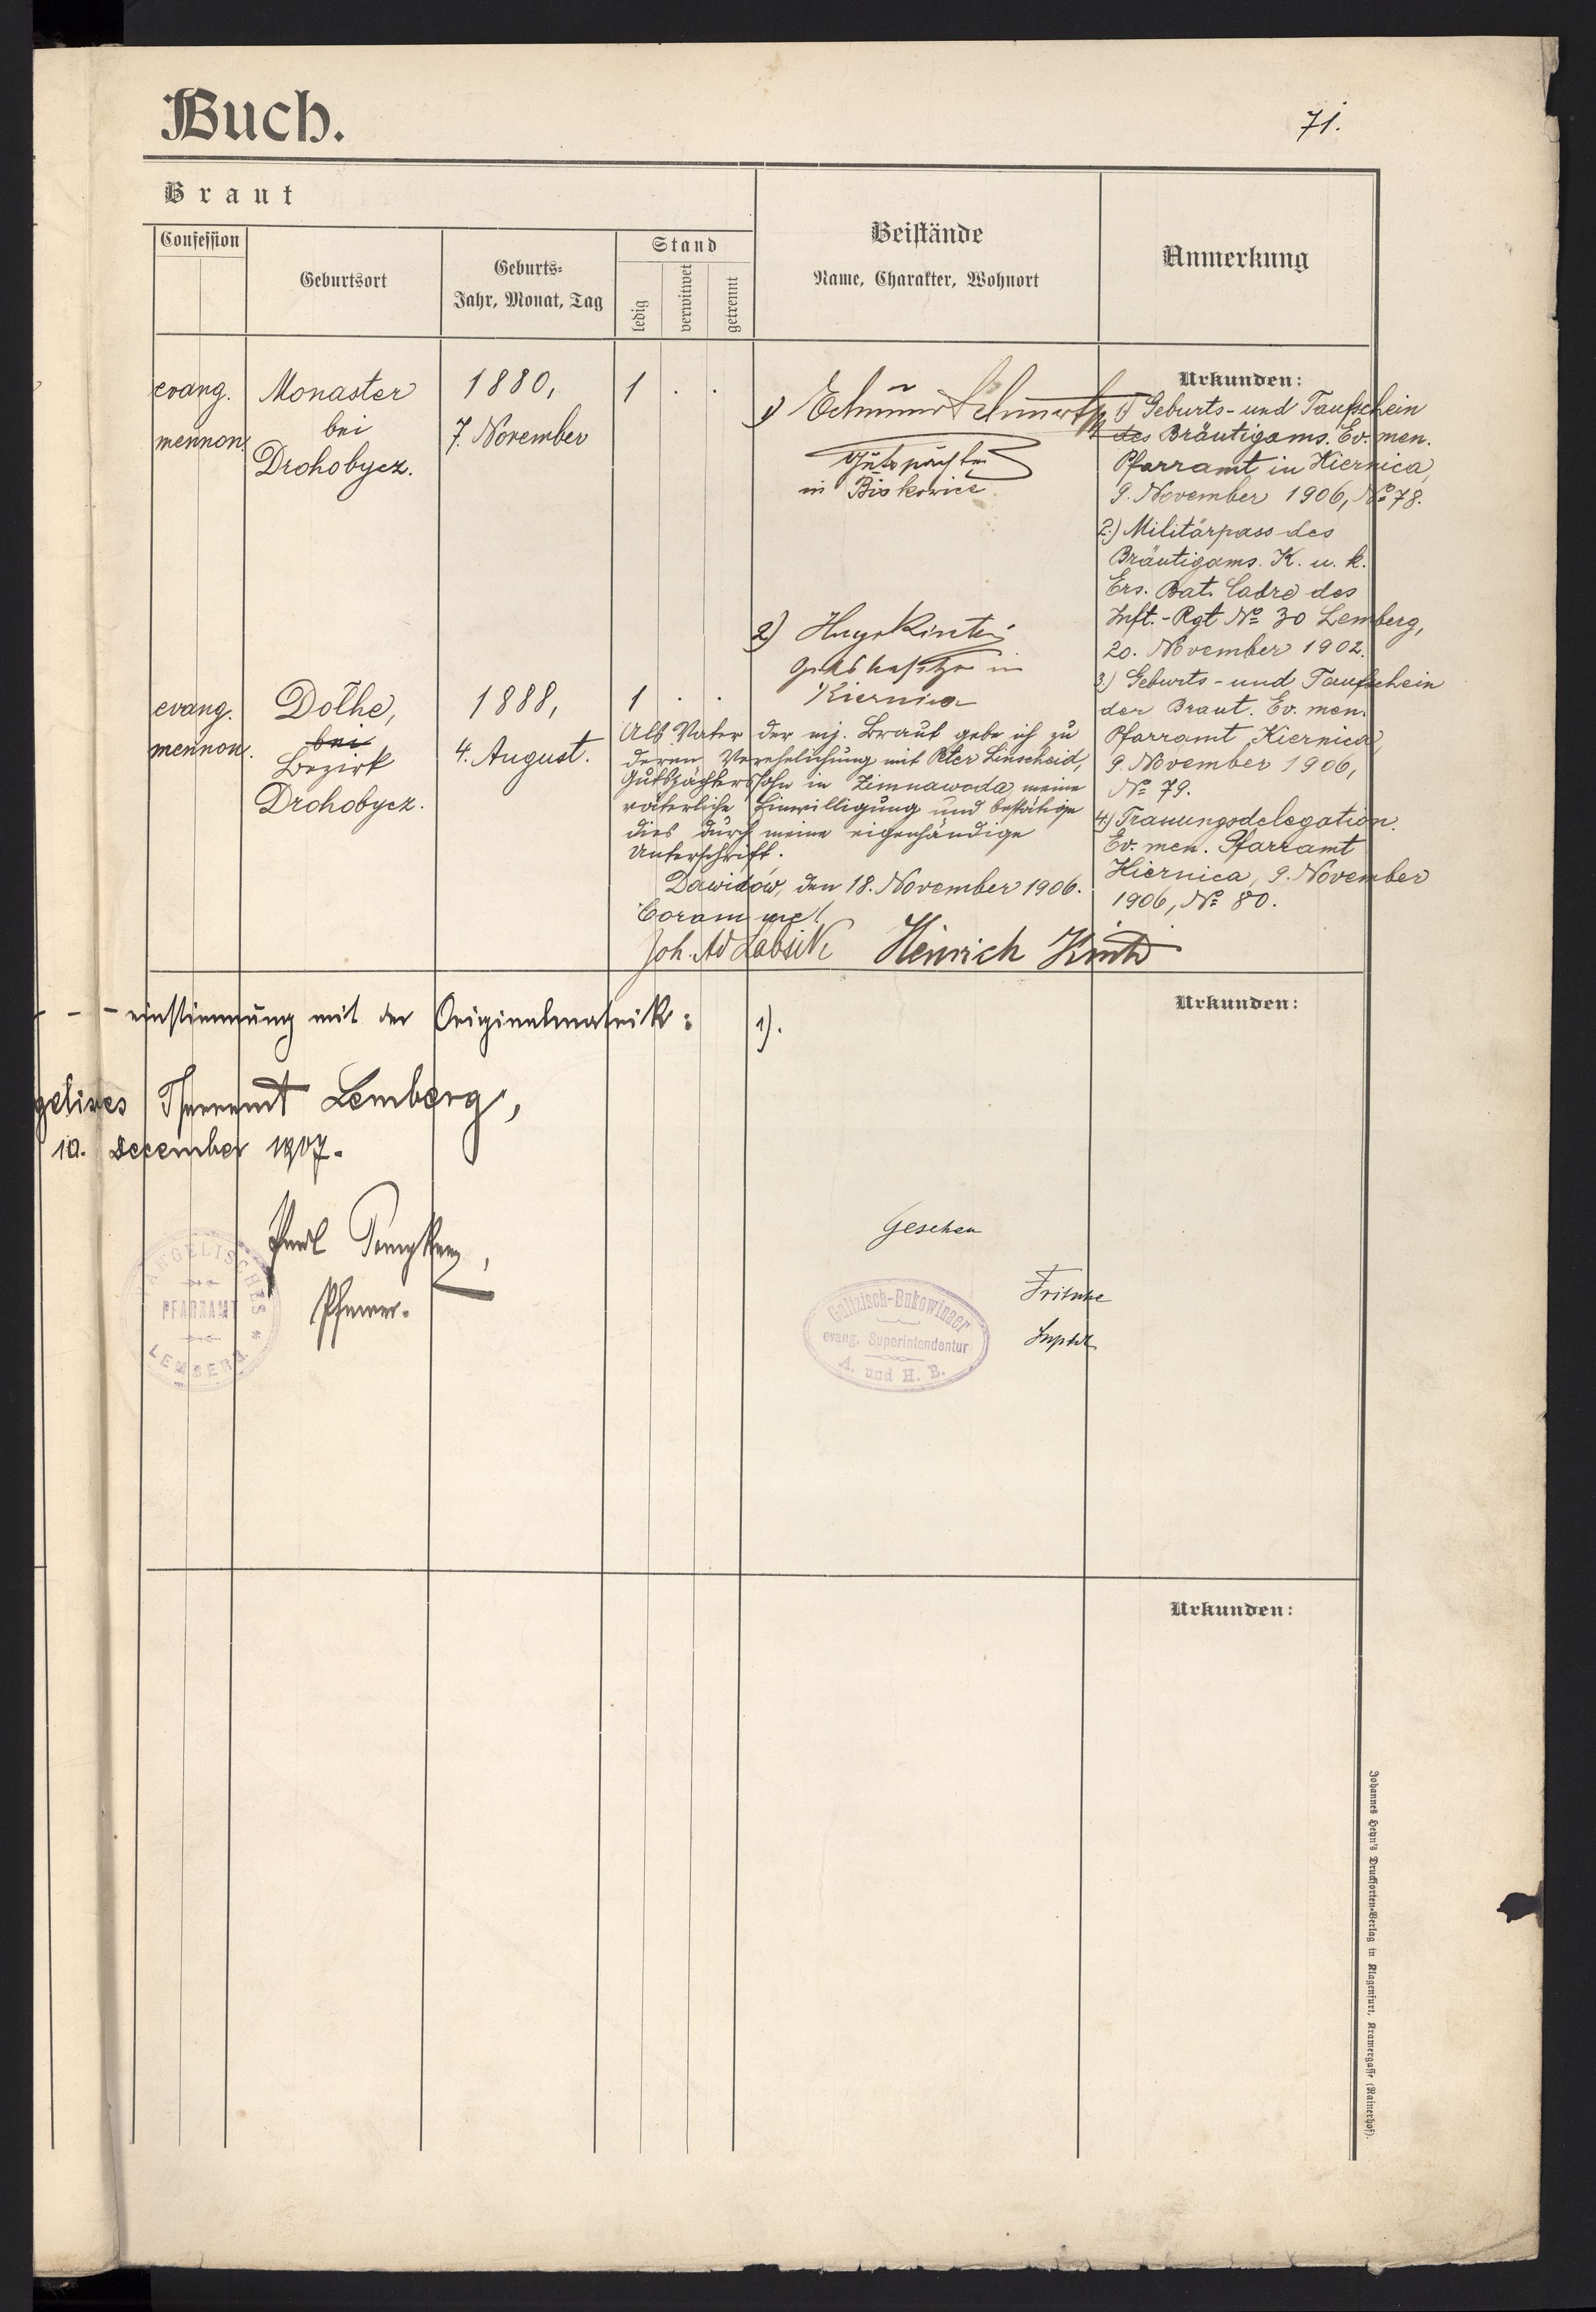 Buch.
71.
Braut
Confession
Geburtsort
Geburts-
Jahr, Monat, Tag
Stand
ledig
verwitwet
getrennt
Beistände
Name, Charakter, Wohnort
Anmerkung
evang.
mennon.
Monaster
bei
Drohobycz.
1880,
7. November
1 . .
1)
Gutspächter
in Biskowice
2) Hugo Kintzi
Gutsbesitzer in
Kiernica
Urkunden:
1) Geburts- und Taufschein
des Bräutigams. Ev. men.
Pfarramt in Kiernica,
9. November 1906, No 78.
2.) Militärpass des
Bräutigams. K. u. k.
Ers. Bat. Cadre des
Inft.-Rgt No 30 Lemberg,
20. November 1902.
3.) Geburts- und Taufschein
der Braut. Ev. men.
Pfarramt Kiernica,
9. November 1906,
No 79.
4.) Trauungsdelegation.
Ev. men. Pfarramt
Kiernica, 9. November
1906, No 80.
evang.
mennon.
Dołhe,
bei
Bezirk
Drohobycz.
1888,
4. August.
1 . .
Als Vater der mj. Braut gebe ich zu
deren Verehelichung mit Peter Linscheid,
Gutspächterssohn in Zimnawoda, meine
väterliche Einwilligung und bestätige
dies durch meine eigenhändige
Unterschrift.
Dawidów, den 18. November 1906.
Coram me!
Joh. Ad Labsik Heinrich Kintzi
- - einstimmung mit der Originalmatrik:
1).
Urkunden:
Pfarramt Lemberg,
10. December 1907.
Pfarrer.
EVANGELISCHES
PFARRAMT
LEMBERG
Gesehen
Fritsche
Supdt
Galizisch-Bukowinaer
evang. Superintendentur
A. und H. B.
Urkunden:
Johannes Heyn's Drucksorten-Verlag in Klagenfurt, Kramergasse (Rainerhof).